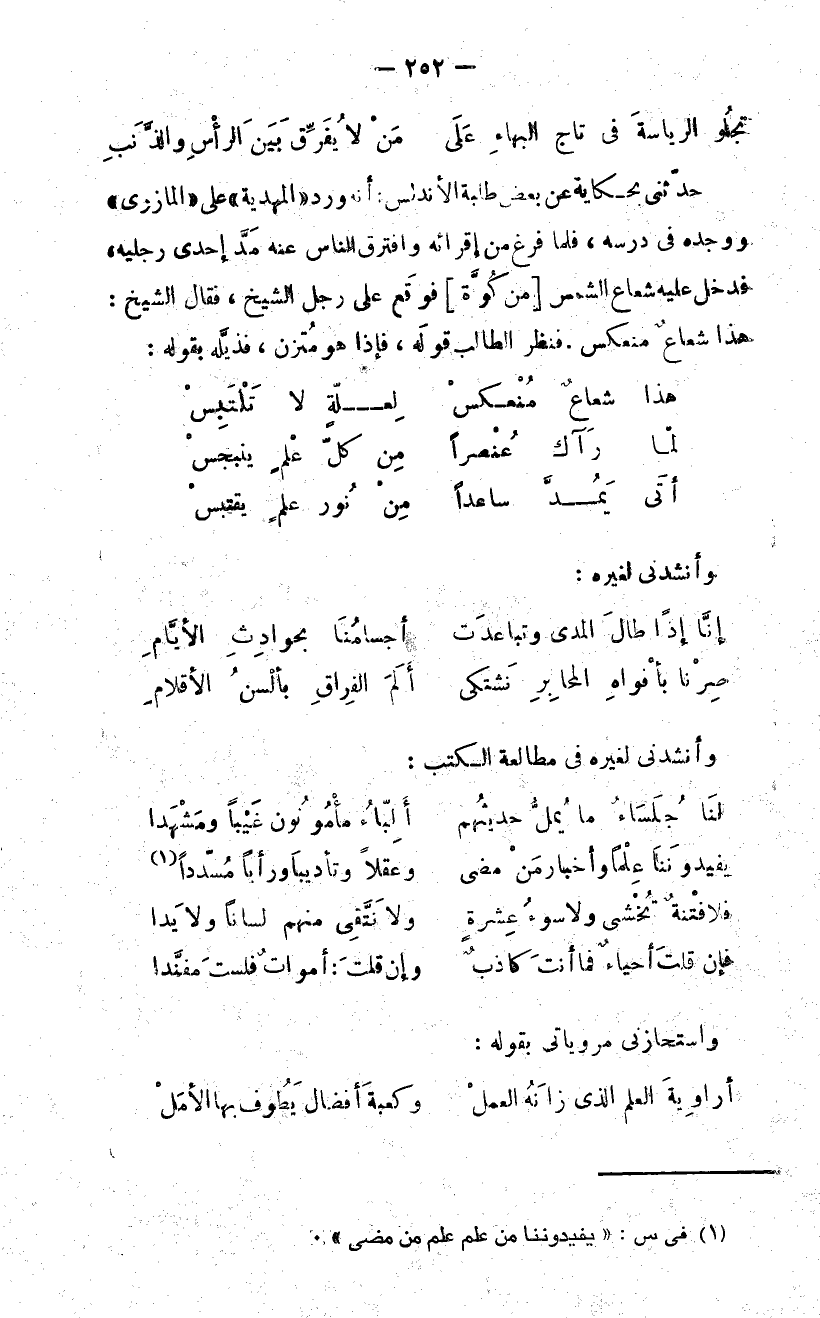 — ٢٥٢ —
تجلُو الرياسةَ فى تاج البهاءِ عَلَى مَنْ لا يُفَرِّق بَيَن الرأْسِ والذَّنَبِ
حدّثنى بحكاية عن بعض طلبة الأندلس: أنه ورد «المهدية» على «المازرى»
ووجده فى درسه ، فلما فرغ من إقرائه وافترق الناس عنه مَدَّ إحدى رجليه،
فدخل عليه شعاع الشمس [من كُوَّة ] فوقع على رجل الشيخ ، فقال الشيخ :
هذا شعاعٌ منعكس . فنظر الطالب قوله ، فإذا هو مُتزن ، فذيَّله بقوله :
هذا شعاعٌ مُنْعكسْ لِعلّةٍ لا تَلْتَبِسْ
لمّا رَآك عُنْصراً مِن كلّ عْلمٍ ينبجسْ
أتَى يَمُدَّ ساعداً مِنْ نُور علمٍ يقتبسْ
وأنشدنى لغيره :
إنَّا إذًا طالَ المدى وتباعدَت أجسامُنَا بحوادِثِ الأيَّامِ
صِرْنا بأْفواهِ المحابِرِ نَشتكى أَلَمَ الفِراقِ بألْسنُ الأقلامِ
وأنشدنى لغيره فى مطالعة الكتب :
لنَا جُلَسَاءُ ما يُملُّ حديثُهم أَلِبّاءُ مأْمُونُون غَيْباً ومَشْهَدا
يفيدونَنا عِلْماً وأخبار مَنْ مضى وعقلاً وتأديباً ورأباً مُسّدداً (١)
فلا فْتنةٌ تُخْشى ولا سوءُ عِشرةٍ ولا نَتَّقِى منهم لساناً ولا يَدا
فإن قلتَ أحياءٌ فما أنتَ كاذبٌ وإن قلتَ: أمواتٌ فلستَ مفنَّدا
واستحازنى مروياتى بقوله :
أراوِيةَ العلم الذى زانَهُ العملْ وكعبةَ أفضال يَطُوف بها الأمَلْ
(١) فى س : « يفيدوننا من علم علم من مضى » .